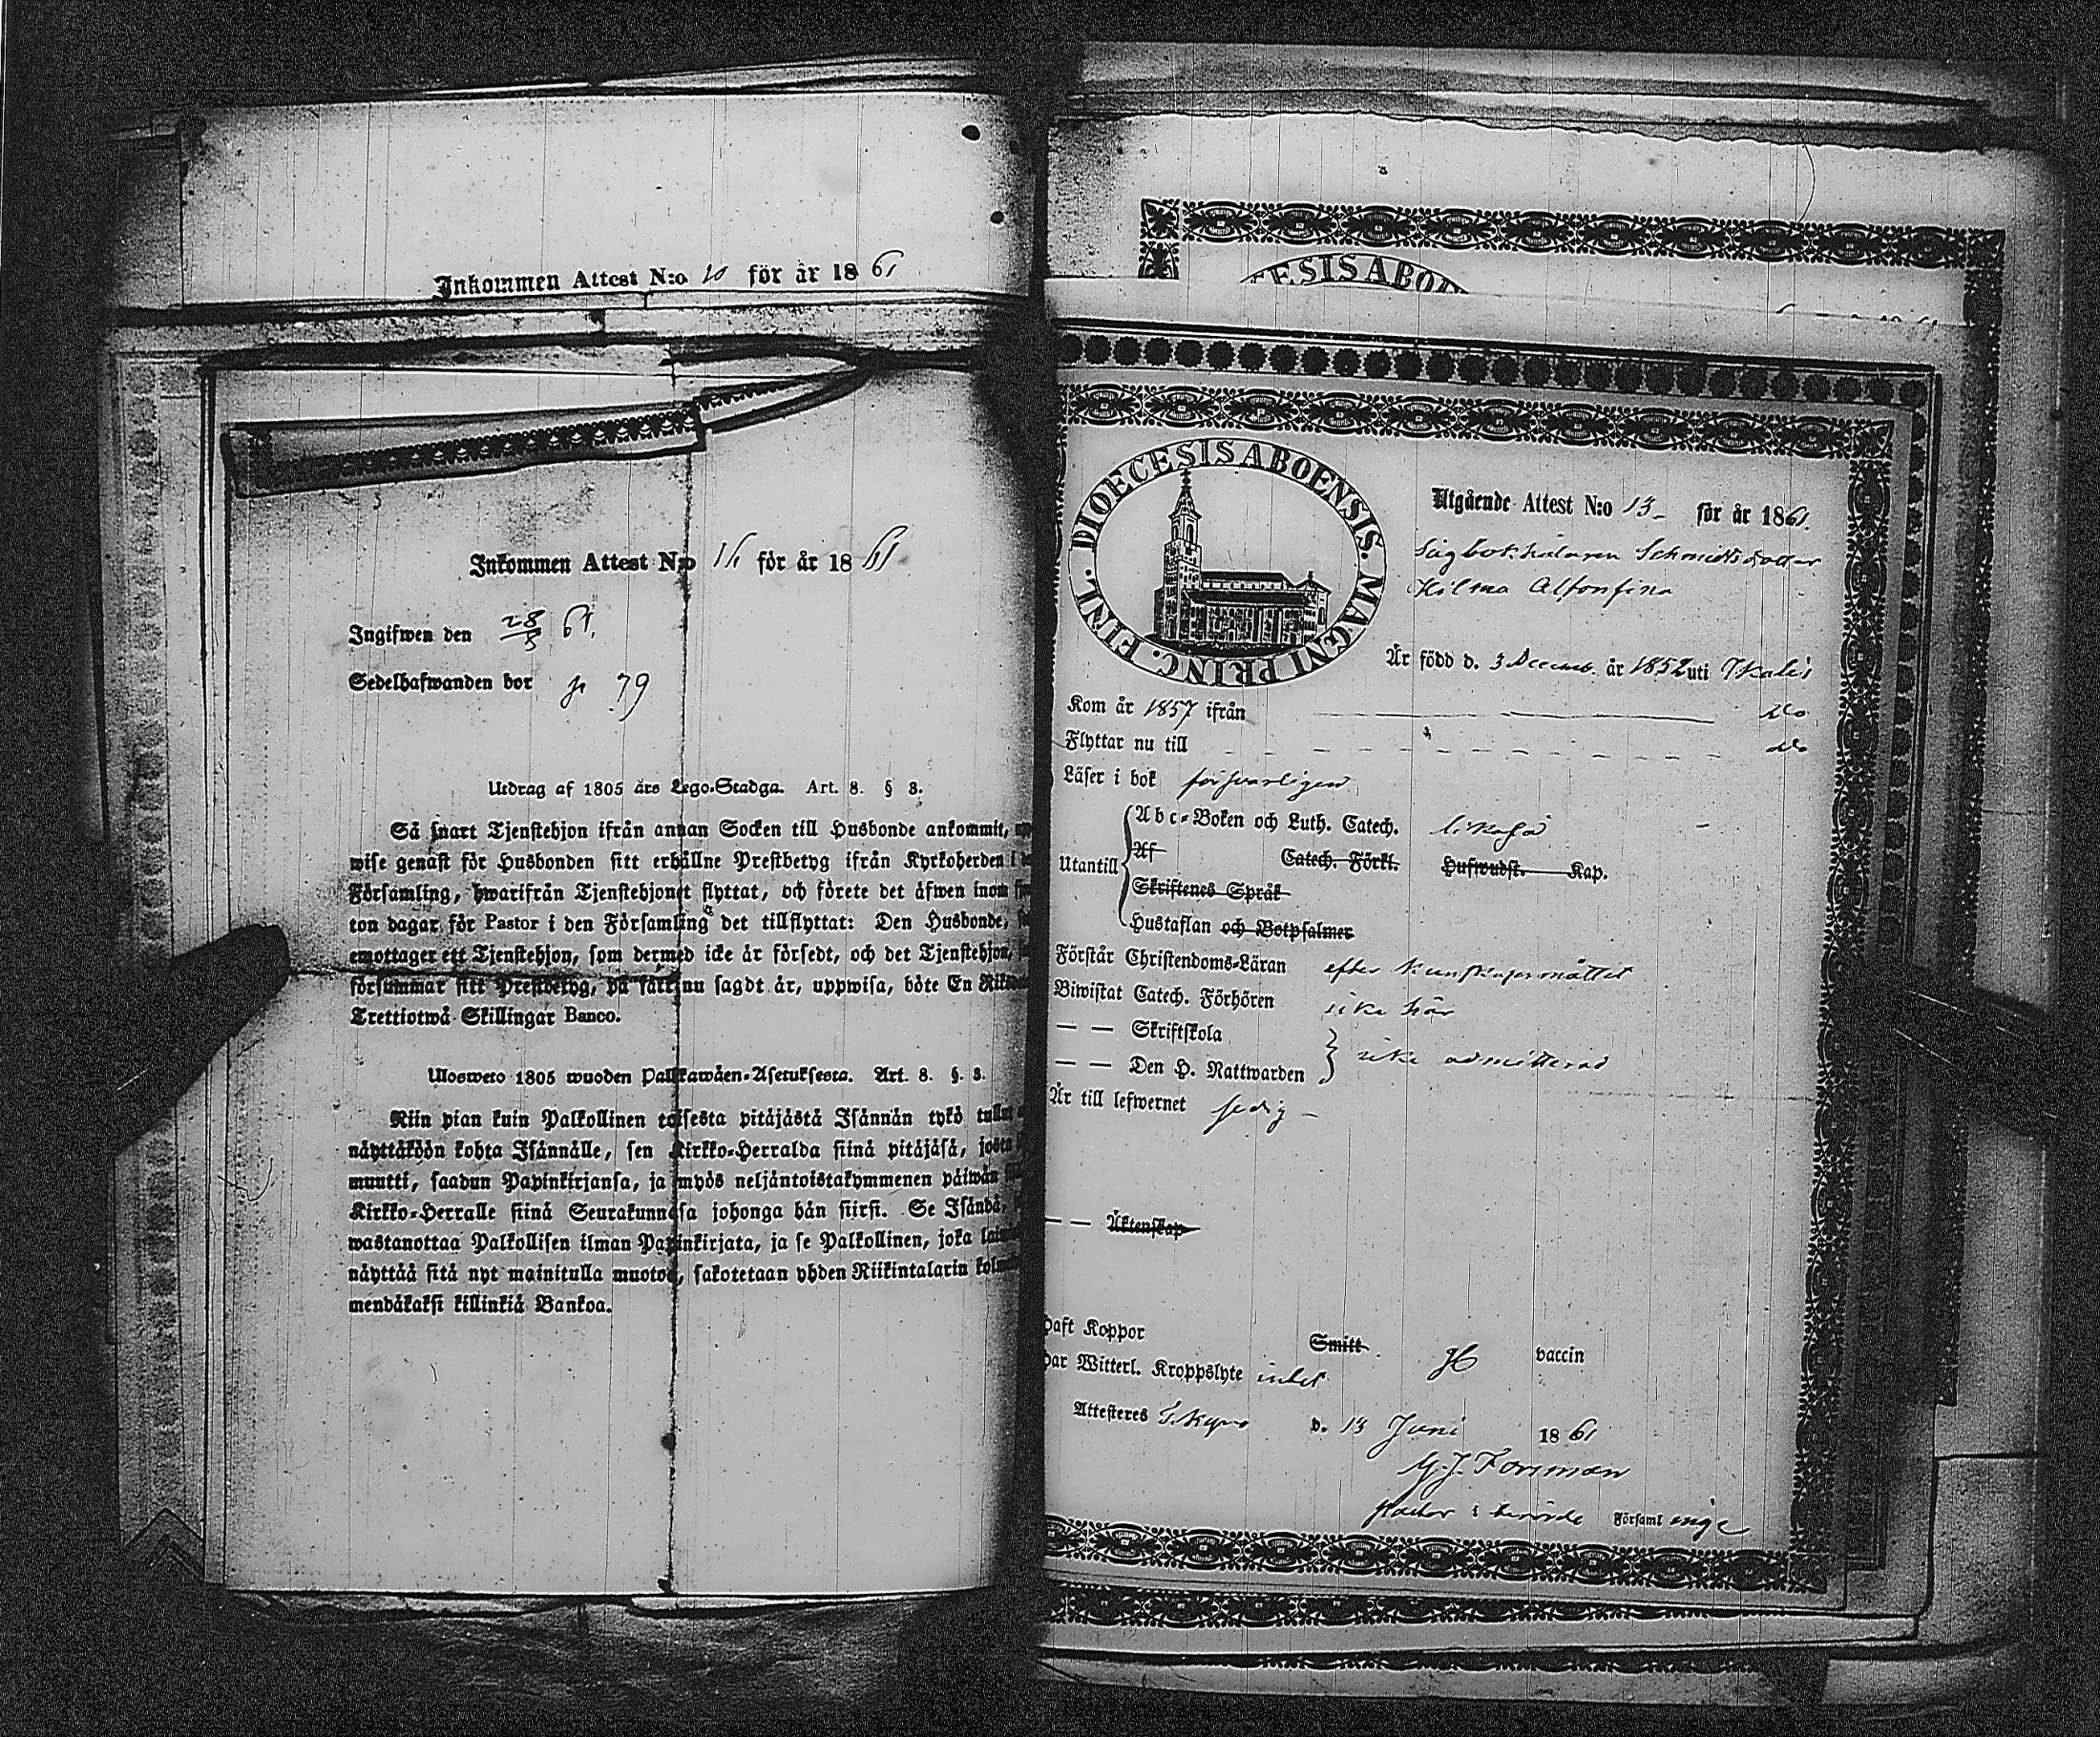 Inkommen Attest N:o 10 för år 1861
Inkommen Attest N:o 16 för år 1861
Ingifwen den 28/8 61.
Sedelhafwanden bor p 79
Utdrag af 1805 års Lego-Stadga. Art. 8. § 8.
Så snart Tjenstehjon ifrån annan Socken till Husbonde ankommit,
wise genast för Husbonden sitt erhållne Prestbetyg ifrån Kyrkoherden i
Församling, hwarifrån Tjenstehjonet flyttat, och förete det äfwen inom
ton dagar för Pastor i den Församling det tillflyttat: Den Husbonde,
emottager ett Tjenstehjon, som dermed icke är försedt, och det Tjenstehjon,
försummar sitt Prestbetyg, på sätt nu sagdt är, uppwisa, böte En
Trettiotwå Skillingar Banco.
Ulosweto 1805 wuoden Palkkawäen-Asetuksesta. Art. 8. §. 8.
Niin pian kuin Palkollinen toisesta pitäjästä Isännän tykö tullut
näyttäköön kohta Isännälle, sen Kirkko-Herralda siinä pitäjäsä, josta
muutti, saadun Papinkirjansa, ja myös neljäntoistakymmenen päiwän
Kirkko-Herralle siinä Seurakunnasa johonga hän siirsi. Se Isändä,
wastanottaa Palkollisen ilman Papinkirjata, ja se Palkollinen, joka
näyttää sitä nyt mainitulla muotoa, sakotetaan yhden Riikintalarin
mendäkaksi killinkiä Bankoa.
ESIS ABO
DIOECESIS ABOENSIS. MAGNI PRINC. FINL.
Utgående Attest N:o 13 för år 1861.
Sågbokhålaren Schmidts dotter
Hilma Alfonsina
Är född d. 3 Decemb. år 1852 uti Ikalis
Kom år 1857 ifrån do
Flyttar nu till do
Läser i bok försvarligen
Utantill
Abc-Boken och Luth. Catech. likaså
Af Catech. Förkl. Hufwudst. Kap.
Skriftenes Språk
Hustaflan och Botpsalmer
Förstår Christendoms-Läran efter kunskapsmåttet
Biwistat Catech. Förhören icke här
— — Skriftskola
— — Den H. Nattwarden } icke admitterad
Är till lefwernet sedig —
— — Äktenskap
Haft Koppor Smitt vaccin
Har Witterl. Kroppslyte intet
Attesteres T.kyro d. 13 Juni 1861
Forsman
pastor i berörde Församl inge